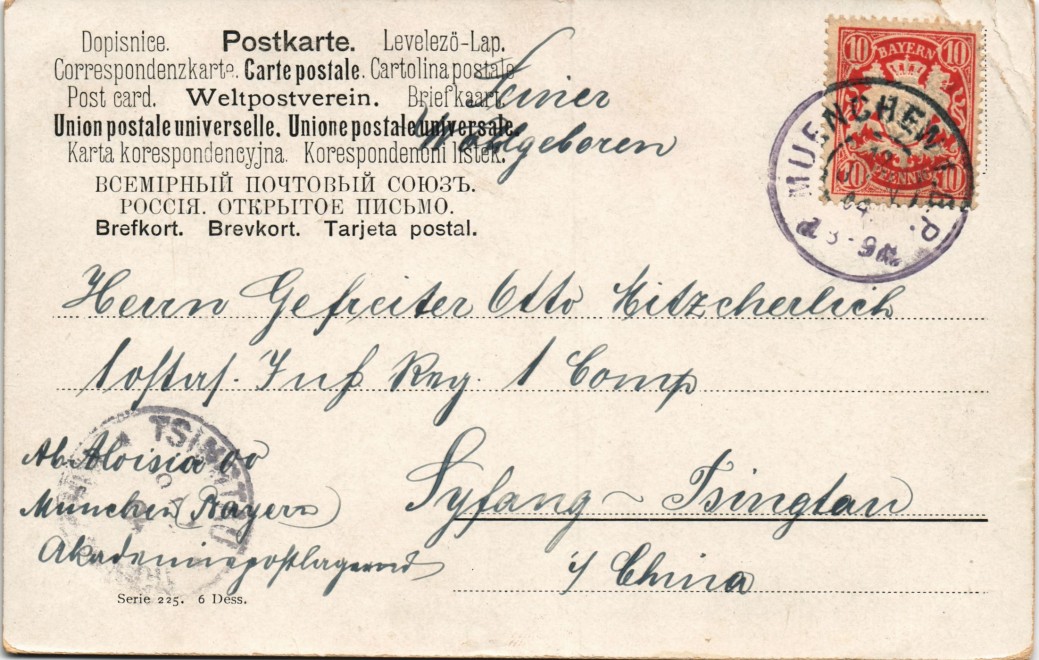 Dopisnice. Postkarte. Levelező-Lap.
Correspondenzkarte. Carte postale. Cartolina postale
Post card. Weltpostverein. Briefkaart.
Union postale universelle. Unione postale universale.
Karta korespondencyjna. Korespondenčni listek.
ВСЕМІРНЫЙ ПОЧТОВЫЙ СОЮЗЪ.
РОССІЯ. ОТКРЫТОЕ ПИСЬМО.
Brefkort. Brevkort. Tarjeta postal.
Seiner
Wohlgeboren
10 BAYERN 10
10 PFENNIG 10
MUENCHEN
Herrn Gefreiter Otto Mitzcherlich
1 ostas. Inf Reg. 1 Comp
Syfang ~ Tsingtau
i/ China
TSINGTAU
Ab. Aloisia 00
München (Bayern)
Akademiepostlagernd
Serie 225. 6 Dess.